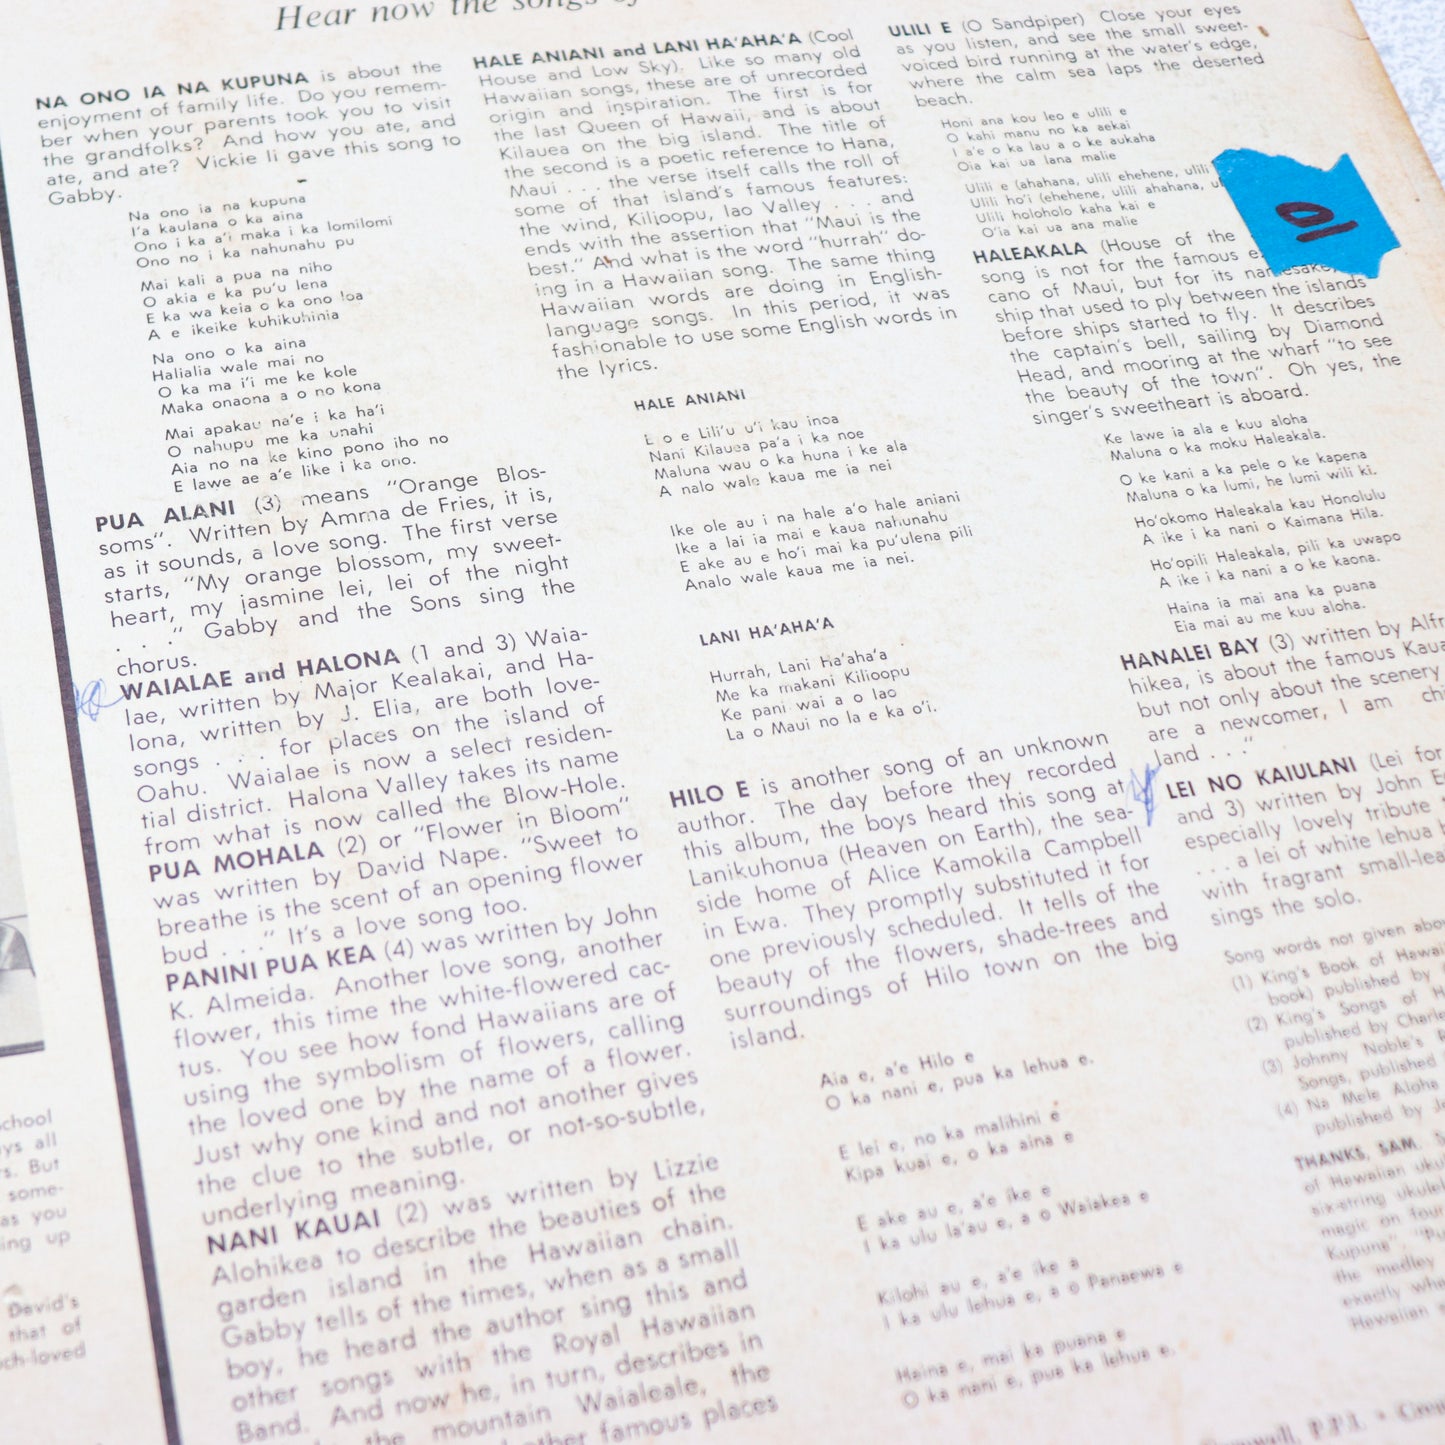 Hear now the songs
NA ONO IA NA KUPUNA is about the
enjoyment of family life. Do you remem-
ber when your parents took you to visit
the grandfolks? And how you ate, and
ate, and ate? Vickie Ii gave this song to
Gabby.
Na ono ia na kupuna
I'a kaulana o ka aina
Ono i ka a'i maka i ka lomilomi
Ono no i ka nahunahu pu
Mai kali a pua na niho
O akia e ka pu'u lena
E ka wa keia o ka ono loa
A e ikeike kuhikuhinia
Na ono o ka aina
Halialia wale mai no
O ka ma i'i me ke kole
Maka onaona a o no kona
Mai apakau na'e i ka ha'i
O nahupu me ka unahi
Aia no na ke kino pono iho no
E lawe ae a'e like i ka ono.
PUA ALANI (3) means "Orange Blos-
soms". Written by Amma de Fries, it is,
as it sounds, a love song. The first verse
starts, "My orange blossom, my sweet-
heart, my jasmine lei, lei of the night
. . ." Gabby and the Sons sing the
chorus.
WAIALAE and HALONA (1 and 3) Waia-
lae, written by Major Kealakai, and Ha-
lona, written by J. Elia, are both love-
songs . . . for places on the island of
Oahu. Waialae is now a select residen-
tial district. Halona Valley takes its name
from what is now called the Blow-Hole.
PUA MOHALA (2) or "Flower in Bloom"
was written by David Nape. "Sweet to
breathe is the scent of an opening flower
bud . . ." It's a love song too.
PANINI PUA KEA (4) was written by John
K. Almeida. Another love song, another
flower, this time the white-flowered cac-
tus. You see how fond Hawaiians are of
using the symbolism of flowers, calling
the loved one by the name of a flower.
Just why one kind and not another gives
the clue to the subtle, or not-so-subtle,
underlying meaning.
NANI KAUAI (2) was written by Lizzie
Alohikea to describe the beauties of the
garden island in the Hawaiian chain.
Gabby tells of the times, when as a small
boy, he heard the author sing this and
other songs with the Royal Hawaiian
Band. And now he, in turn, describes in
the mountain Waialeale, the
other famous places
HALE ANIANI and LANI HA'AHA'A (Cool
House and Low Sky). Like so many old
Hawaiian songs, these are of unrecorded
origin and inspiration. The first is for
the last Queen of Hawaii, and is about
Kilauea on the big island. The title of
the second is a poetic reference to Hana,
Maui . . . the verse itself calls the roll of
some of that island's famous features:
the wind, Kilioopu, Iao Valley . . . and
ends with the assertion that "Maui is the
best." And what is the word "hurrah" do-
ing in a Hawaiian song. The same thing
Hawaiian words are doing in English-
language songs. In this period, it was
fashionable to use some English words in
the lyrics.
HALE ANIANI
E o e Lili'u u'i kau inoa
Nani Kilauea pa'a i ka noe
Maluna wau o ka huna i ke ala
A nalo wale kaua me ia nei
Ike ole au i na hale a'o hale aniani
Ike a lai ia mai e kaua nahunahu
E ake au e ho'i mai ka pu'ulena pili
Analo wale kaua me ia nei.
LANI HA'AHA'A
Hurrah, Lani Ha'aha'a
Me ka makani Kilioopu
Ke pani wai a o Iao
La o Maui no la e ka o'i.
HILO E is another song of an unknown
author. The day before they recorded
this album, the boys heard this song at
Lanikuhonua (Heaven on Earth), the sea-
side home of Alice Kamokila Campbell
in Ewa. They promptly substituted it for
one previously scheduled. It tells of the
beauty of the flowers, shade-trees and
surroundings of Hilo town on the big
island.
Aia e, a'e Hilo e
O ka nani e, pua ka lehua e.
E lei e, no ka malihini e
Kipa kuai e, o ka aina e
E ake au e, a'e ike e
I ka ulu la'au e, a o Waiakea e
Kilohi au e, a'e ike a
I ka ulu lehua e, a o Panaewa e
Haina e, mai ka puana e
O ka nani e, pua ka lehua e.
ULILI E (O Sandpiper) Close your eyes
as you listen, and see the small sweet-
voiced bird running at the water's edge,
where the calm sea laps the deserted
beach.
Honi ana kou leo e ulili e
O kahi manu no ka aekai
I a'e o ka lau a o ke aukaha
Oia kai ua lana malie
Ulili e (ahahana, ulili ehehene, ulili
Ulili ho'i (ehehene, ulili ahahana,
Ulili holoholo kaha kai e
O'ia kai ua ana malie
10
HALEAKALA (House of the
song is not for the famous
cano of Maui, but for its namesake,
ship that used to ply between the islands
before ships started to fly. It describes
the captain's bell, sailing by Diamond
Head, and mooring at the wharf "to see
the beauty of the town". Oh yes, the
singer's sweetheart is aboard.
Ke lawe ia ala e kuu aloha
Maluna o ka moku Haleakala.
O ke kani a ka pele o ke kapena
Maluna o ka lumi, he lumi wili ki.
Ho'okomo Haleakala kau Honolulu
A ike i ka nani o Kaimana Hila.
Ho'opili Haleakala, pili ka uwapo
A ike i ka nani a o ke kaona.
Haina ia mai ana ka puana
Eia mai au me kuu aloha.
HANALEI BAY (3) written by Alfr
hikea, is about the famous Kaua
but not only about the scenery
are a newcomer, I am
land . . ."
LEI NO KAIULANI (Lei for
and 3) written by John E
especially lovely tribute
. . . a lei of white lehua
with fragrant small-lea
sings the solo.
Song words not given abo
(1) King's Book of Hawai
book) published by
(2) King's Songs of H
published by Charle
(3) Johnny Noble's
Songs, published
(4) Na Mele Aloha
published by J
THANKS, SAM.
of Hawaiian uku
six-string ukulel
magic on four
Kupuna", "Pu
the medley
exactly whe
Hawaiian
chool
ys all
s. But
some-
as you
ing up
David's
that of
ch-loved